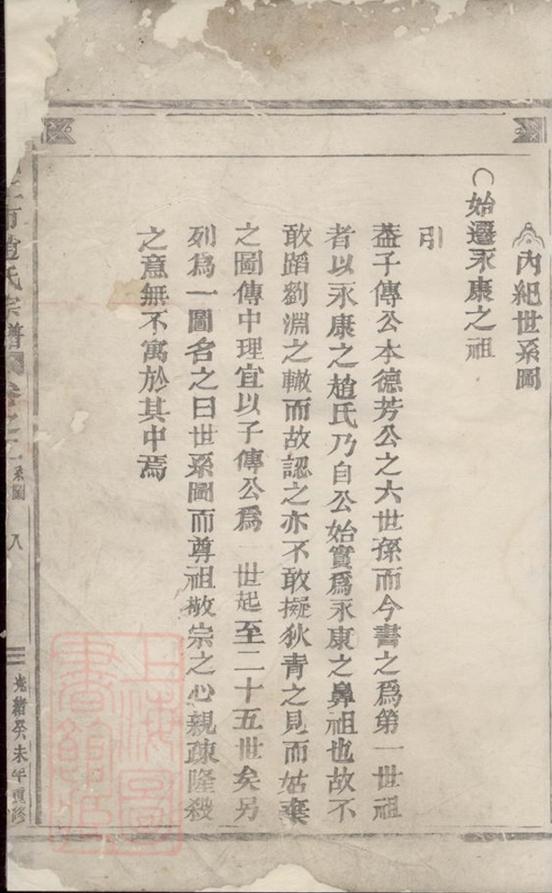 內紀世系圖
○始遷永康之祖
引
葢子傳公本德芳公之六世孫而今書之爲第一世祖
者以永康之趙氏乃自公始實爲永康之鼻祖也故不
敢蹈劉淵之轍而故認之亦不敢擬狄青之見而姑棄
之圖傳中理宜以子傳公爲一世起至二十五世矣另
列爲一圖名之曰世系圖而尊祖敬宗之心親疎隆殺
之意無不寓於其中焉
趙氏宗譜 卷之 系圖 八 光緒癸未年重修
上海圖書館藏